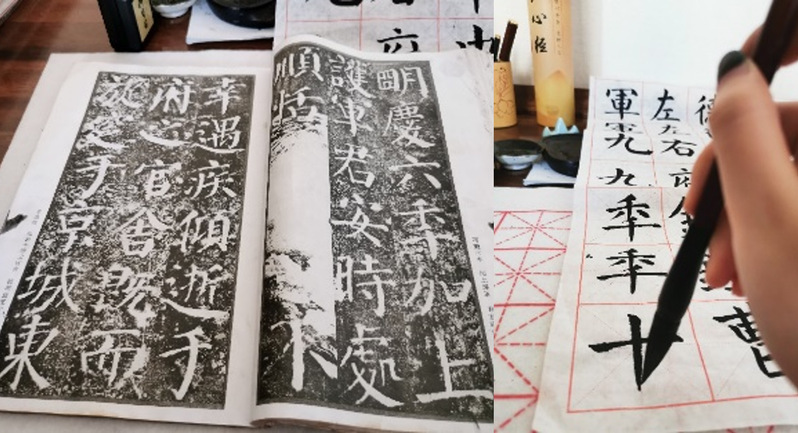 明慶六秊加上
護軍君安時處
順恬
不
幸遇疾傾逝于
府之官舍既而
于京城東
心经
左左右
曹
軍
九秊秊十